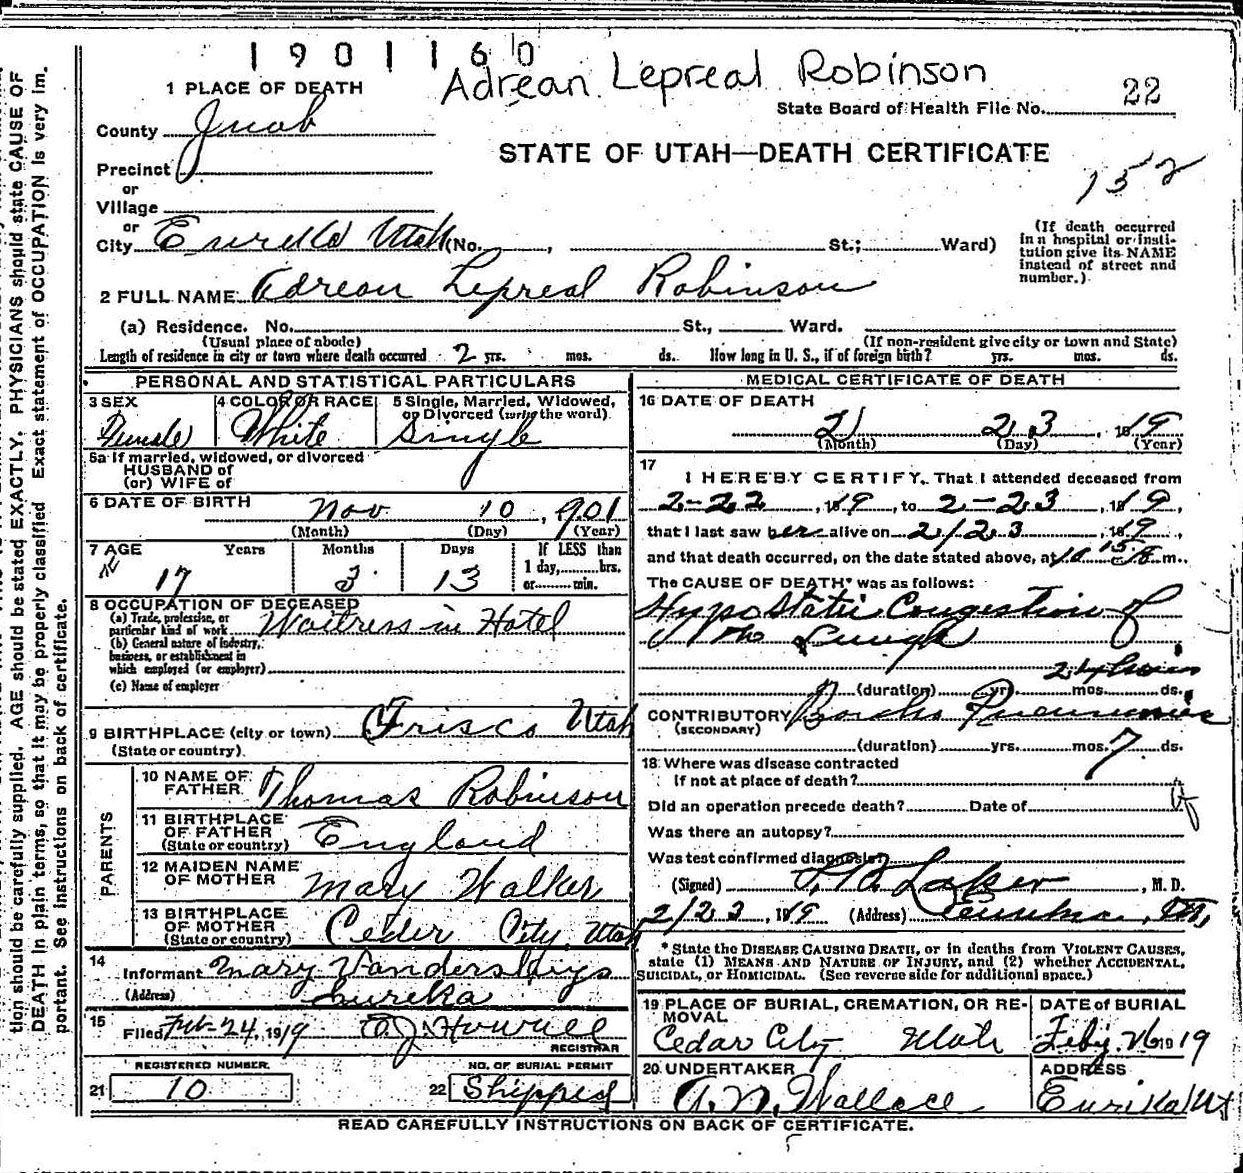 1901160
Adrean Lepreal Robinson
1 PLACE OF DEATH
State Board of Health File No. 22
County Juab
STATE OF UTAH—DEATH CERTIFICATE
Precinct
152
or
Village
or
City Eureka Utah (No. , St.; Ward)
(If death occurred
in a hospital or insti-
tution give its NAME
instead of street and
number.)
2 FULL NAME Adrean Lepreal Robinson
(a) Residence. No. St., Ward.
(Usual place of abode) (If non-resident give city or town and State)
Length of residence in city or town where death occurred 2 yrs. mos. ds. How long in U. S., if of foreign birth? yrs. mos. ds.
PERSONAL AND STATISTICAL PARTICULARS
3 SEX Female
4 COLOR OR RACE White
5 Single, Married, Widowed,
or Divorced (write the word)
Single
5a If married, widowed, or divorced
HUSBAND of
(or) WIFE of
6 DATE OF BIRTH Nov 10, 1901
(Month) (Day) (Year)
7 AGE Years Months Days If LESS than
1 day, hrs.
or min.
17 3 13
8 OCCUPATION OF DECEASED
(a) Trade, profession, or
particular kind of work Waitress in Hotel
(b) General nature of industry,
business, or establishment in
which employed (or employer)
(c) Name of employer
9 BIRTHPLACE (city or town) Frisco Utah
(State or country)
PARENTS
10 NAME OF
FATHER Thomas Robinson
11 BIRTHPLACE
OF FATHER
(State or country) England
12 MAIDEN NAME
OF MOTHER Mary Walker
13 BIRTHPLACE
OF MOTHER
(State or country) Ceder City, Utah
14
Informant Mary Vandersluys
(Address) Eureka
15
Filed Feb 24, 1919 E. J. Howell
REGISTRAR
REGISTERED NUMBER
21 10
NO. OF BURIAL PERMIT
22 Shipped
MEDICAL CERTIFICATE OF DEATH
16 DATE OF DEATH
2/ 23, 1919
(Month) (Day) (Year)
17
I HEREBY CERTIFY, That I attended deceased from
2-22, 1919, to 2-23, 1919,
that I last saw her alive on 2/23, 1919,
and that death occurred, on the date stated above, at 10 15 m.
The CAUSE OF DEATH* was as follows:
Hypo Static Congestion of
the Lungs
24 hours
(duration) yrs. mos. ds.
CONTRIBUTORY Boncho Pneumonia
(SECONDARY)
(duration) yrs. mos. 7 ds.
18 Where was disease contracted
If not at place of death?
Did an operation precede death? Date of
Was there an autopsy?
What test confirmed diagnosis?
(Signed) Laker, M. D.
2/23, 1919 (Address) Eureka, Ut,
* State the DISEASE CAUSING DEATH, or in deaths from VIOLENT CAUSES,
state (1) MEANS AND NATURE OF INJURY, and (2) whether ACCIDENTAL,
SUICIDAL, or HOMICIDAL. (See reverse side for additional space.)
19 PLACE OF BURIAL, CREMATION, OR RE-
MOVAL
Cedar City Utah
DATE of BURIAL
Feby. 26 1919
20 UNDERTAKER
A. N. Wallace
ADDRESS
Eurika Ut
READ CAREFULLY INSTRUCTIONS ON BACK OF CERTIFICATE.
tion should be carefully supplied. AGE should be stated EXACTLY. PHYSICIANS should state CAUSE OF
DEATH in plain terms, so that it may be properly classified. Exact statement of OCCUPATION is very im-
portant. See instructions on back of certificate.